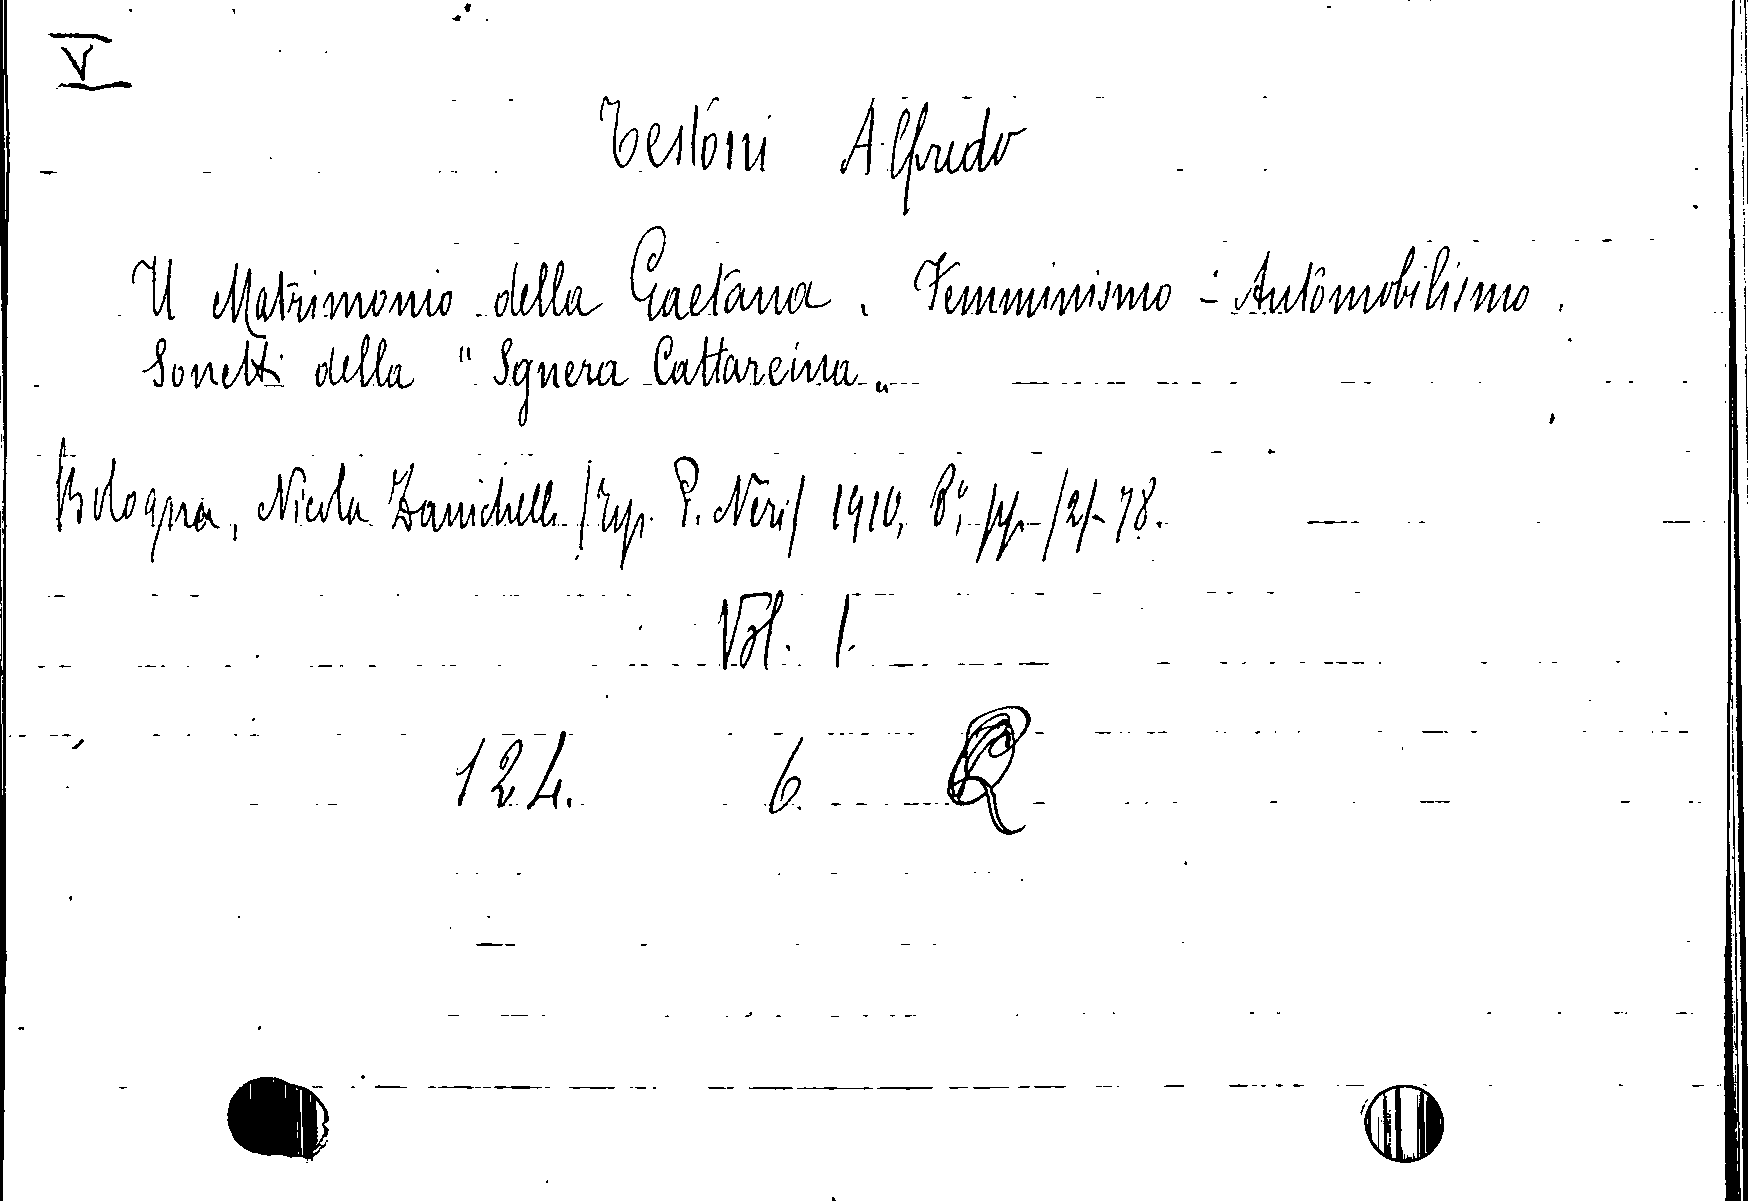 V
Testoni Alfredo
Il Matrimonio della Gaetana. Femminismo - Automobilismo.
Sonetti della "Sgnera Cattareina„
Bologna, Nicola Zanichelli /Tip. P. Neri/ 1910, 8°, pp. /2/-78.
Vol. 1.
124. 6.